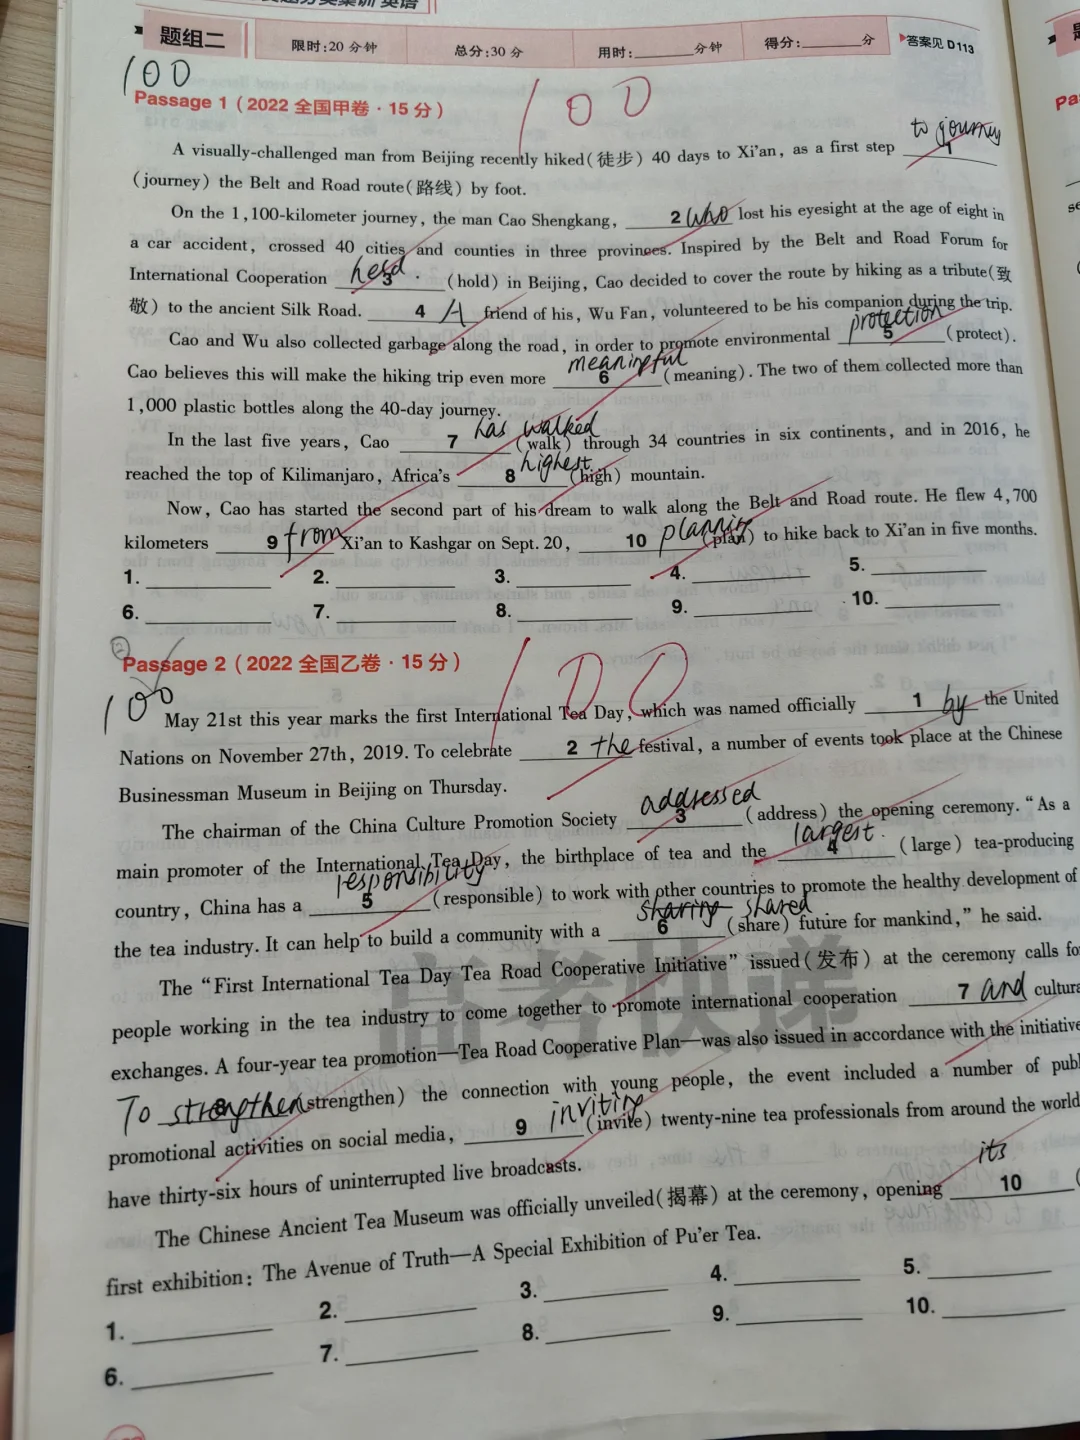 题组二
限时:20 分钟
总分:30 分
用时:______分钟
得分:______分
答案见 D113
100
100
Passage 1 (2022 全国甲卷·15 分)
to journey
A visually-challenged man from Beijing recently hiked(徒步) 40 days to Xi'an, as a first step 1
(journey) the Belt and Road route(路线) by foot.
On the 1,100-kilometer journey, the man Cao Shengkang, 2 who lost his eyesight at the age of eight in
a car accident, crossed 40 cities and counties in three provinces. Inspired by the Belt and Road Forum for
International Cooperation held 3 (hold) in Beijing, Cao decided to cover the route by hiking as a tribute(致
敬) to the ancient Silk Road. 4 A friend of his, Wu Fan, volunteered to be his companion during the trip.
protection
Cao and Wu also collected garbage along the road, in order to promote environmental 5 (protect).
meaningful
Cao believes this will make the hiking trip even more 6 (meaning). The two of them collected more than
1,000 plastic bottles along the 40-day journey.
has walked
In the last five years, Cao 7 (walk) through 34 countries in six continents, and in 2016, he
highest
reached the top of Kilimanjaro, Africa's 8 (high) mountain.
Now, Cao has started the second part of his dream to walk along the Belt and Road route. He flew 4,700
kilometers 9 from Xi'an to Kashgar on Sept. 20, 10 planning (plan) to hike back to Xi'an in five months.
1.______ 2.______ 3.______ 4.______ 5.______
6.______ 7.______ 8.______ 9.______ 10.______
②
Passage 2 (2022 全国乙卷·15 分)
100
100
May 21st this year marks the first International Tea Day, which was named officially 1 by the United
Nations on November 27th, 2019. To celebrate 2 the festival, a number of events took place at the Chinese
Businessman Museum in Beijing on Thursday.
addressed
The chairman of the China Culture Promotion Society 3 (address) the opening ceremony. "As a
largest
main promoter of the International Tea Day, the birthplace of tea and the 4 (large) tea-producing
responsibility
country, China has a 5 (responsible) to work with other countries to promote the healthy development of
sharing shared
the tea industry. It can help to build a community with a 6 (share) future for mankind," he said.
The "First International Tea Day Tea Road Cooperative Initiative" issued(发布) at the ceremony calls for
people working in the tea industry to come together to promote international cooperation 7 and cultura
exchanges. A four-year tea promotion—Tea Road Cooperative Plan—was also issued in accordance with the initiative
To strengthen 8 (strengthen) the connection with young people, the event included a number of publ
promotional activities on social media, 9 inviting (invite) twenty-nine tea professionals from around the world
have thirty-six hours of uninterrupted live broadcasts.
its
The Chinese Ancient Tea Museum was officially unveiled(揭幕) at the ceremony, opening 10 (
first exhibition: The Avenue of Truth—A Special Exhibition of Pu'er Tea.
1.______ 2.______ 3.______ 4.______ 5.______
6.______ 7.______ 8.______ 9.______ 10.______
高考快递